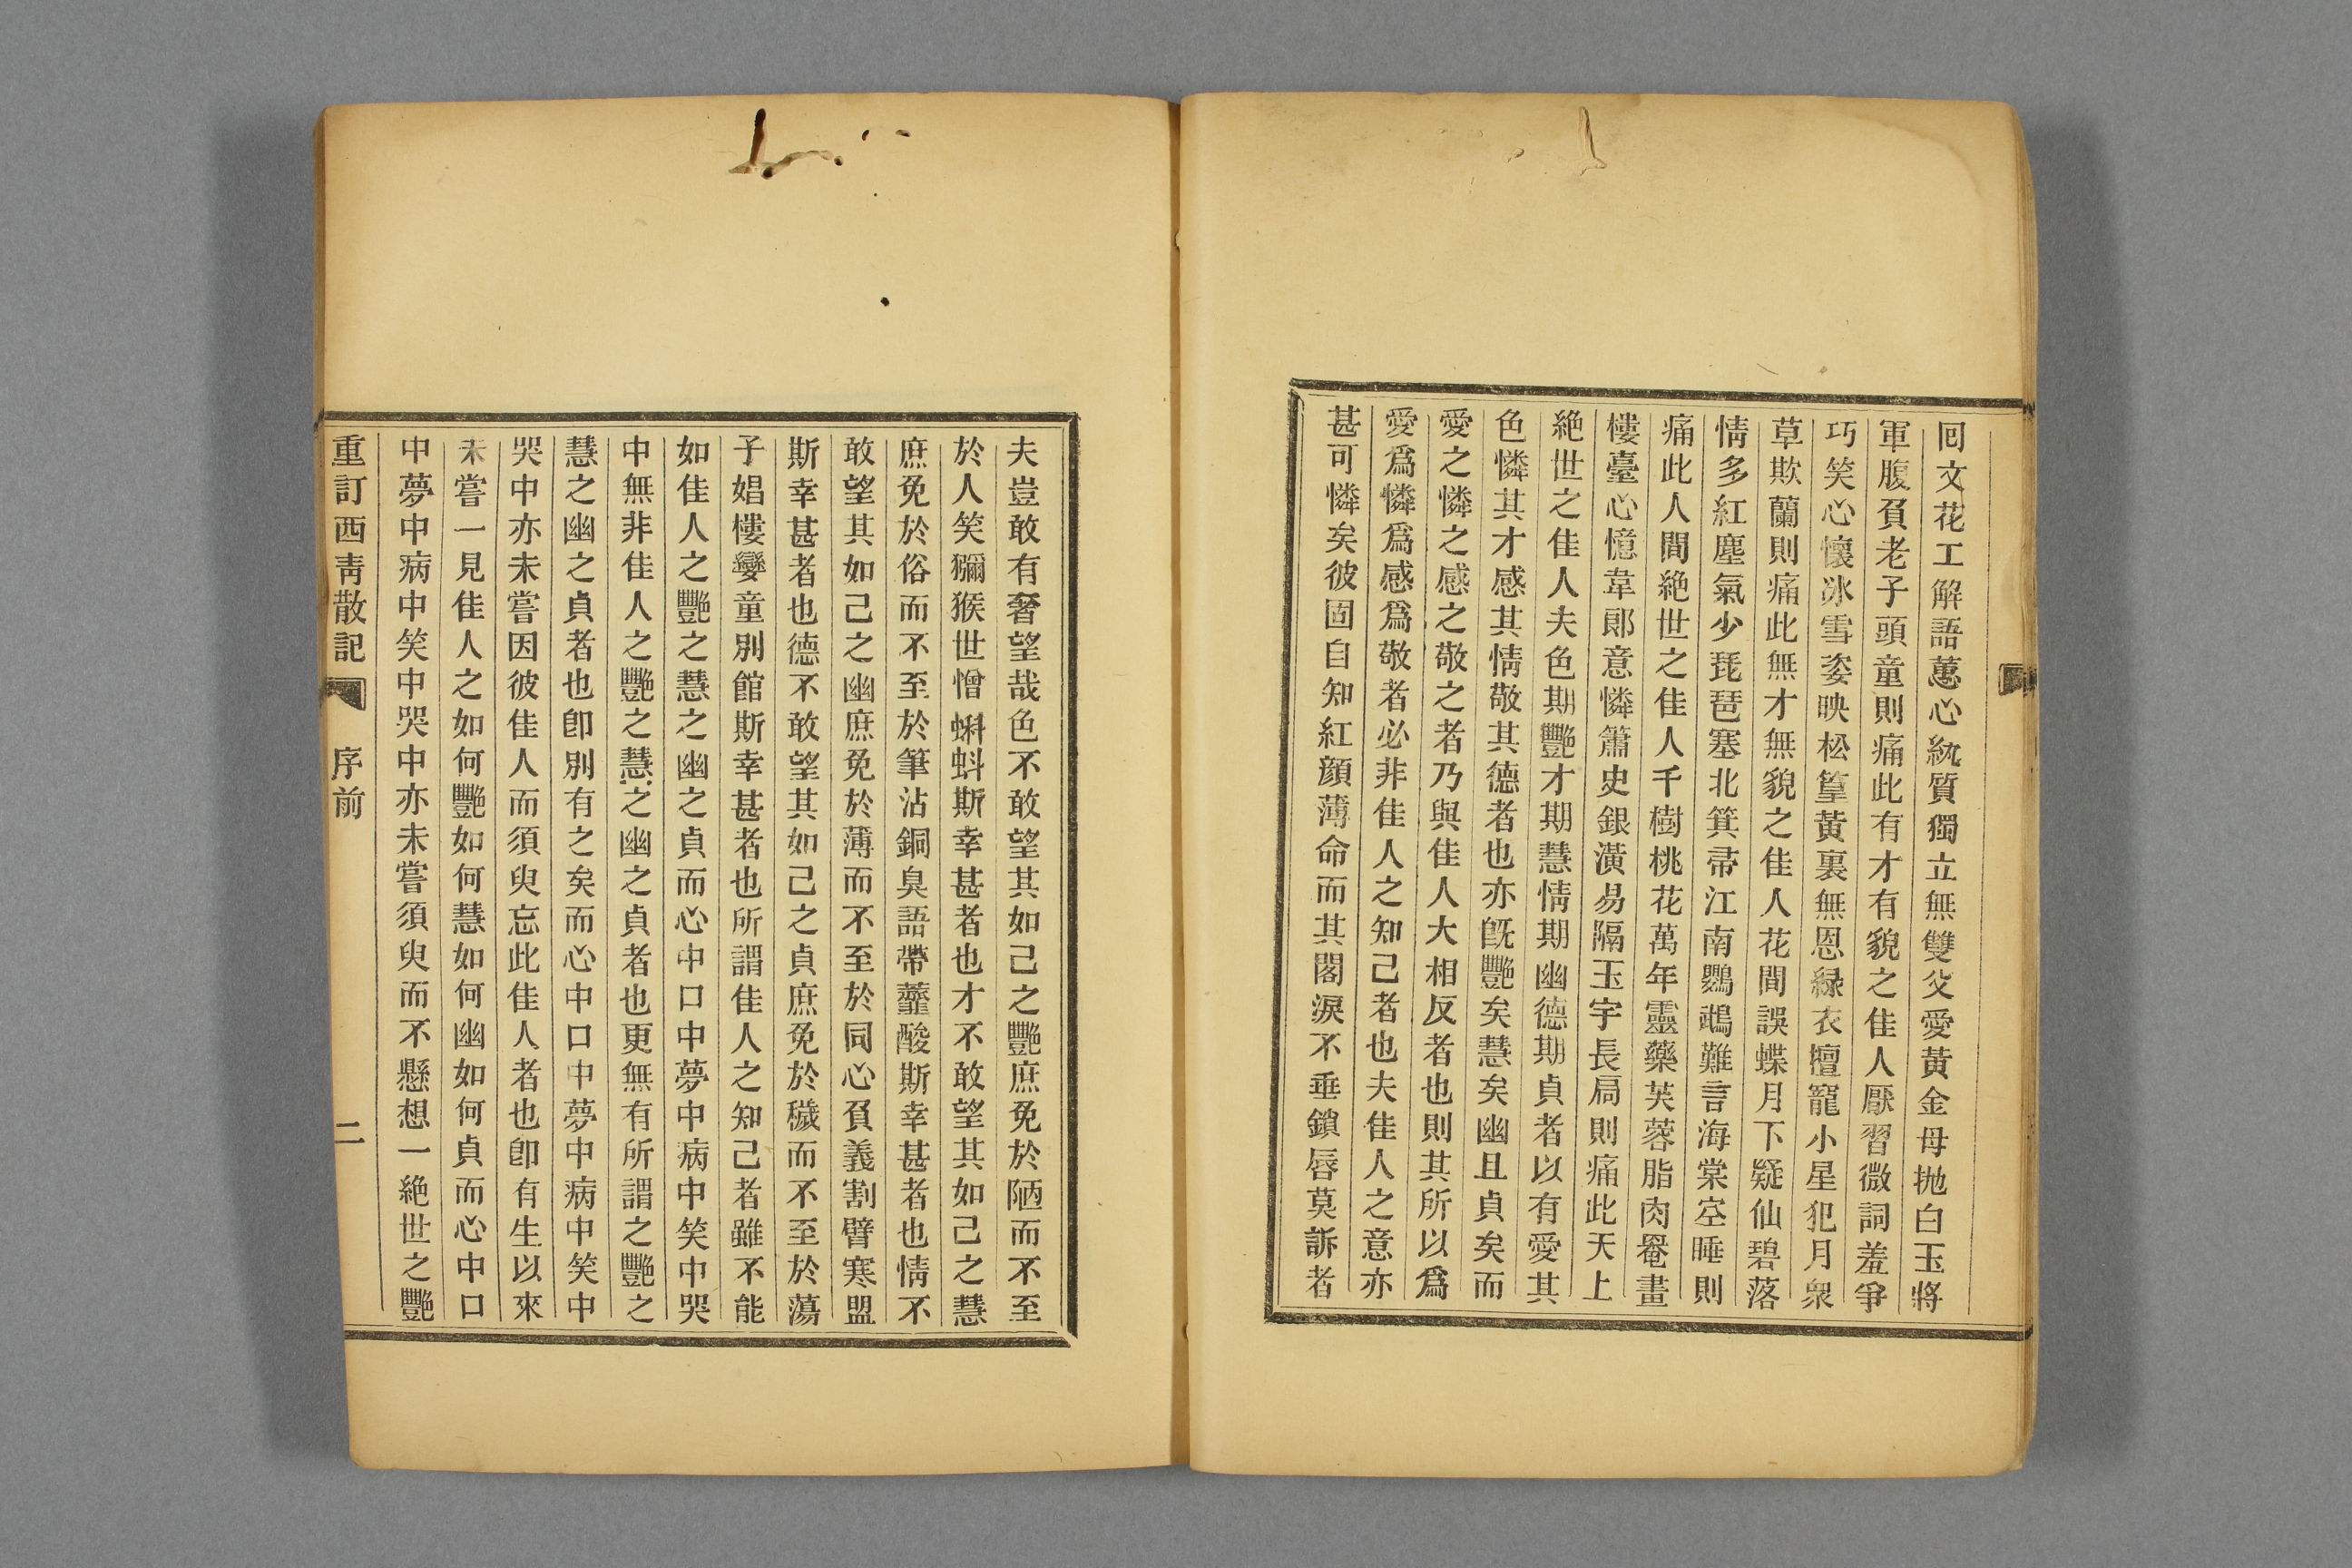 回文花工解語蕙心紈質獨立無雙父愛黃金母抛白玉將
軍腹負老子頭童則痛此有才有貌之佳人厭習微詞羞爭
巧笑心懷冰雪姿映松篁黃裏無恩綠衣擅寵小星犯月衆
草欺蘭則痛此無才無貌之佳人花間誤蝶月下疑仙碧落
情多紅塵氣少琵琶塞北箕帚江南鸚鵡難言海棠空睡則
痛此人間絕世之佳人千樹桃花萬年靈藥芙蓉脂肉罨畫
樓臺心憶韋郞意憐簫史銀潢易隔玉宇長扃則痛此天上
絕世之佳人夫色期豔才期慧情期幽德期貞者以有愛其
色憐其才感其情敬其德者也亦旣豔矣慧矣幽且貞矣而
愛之憐之感之敬之者乃與佳人大相反者也則其所以爲
愛爲憐爲感爲敬者必非佳人之知己者也夫佳人之意亦
甚可憐矣彼固自知紅顏薄命而其閣淚不垂鎖唇莫訴者
夫豈敢有奢望哉色不敢望其如己之豔庶免於陋而不至
於人笑獼猴世憎蝌蚪斯幸甚者也才不敢望其如己之慧
庶免於俗而不至於筆沾銅臭語帶虀酸斯幸甚者也情不
敢望其如己之幽庶免於薄而不至於同心負義割臂寒盟
斯幸甚者也德不敢望其如己之貞庶免於穢而不至於蕩
子娼樓孌童別館斯幸甚者也所謂佳人之知己者雖不能
如佳人之豔之慧之幽之貞而心中口中夢中病中笑中哭
中無非佳人之豔之慧之幽之貞者也更無有所謂之豔之
慧之幽之貞者也卽別有之矣而心中口中夢中病中笑中
哭中亦未嘗因彼佳人而須臾忘此佳人者也卽有生以來
未嘗一見佳人之如何豔如何慧如何幽如何貞而心中口
中夢中病中笑中哭中亦未嘗須臾而不懸想一絕世之豔
重訂西靑散記 序前 二